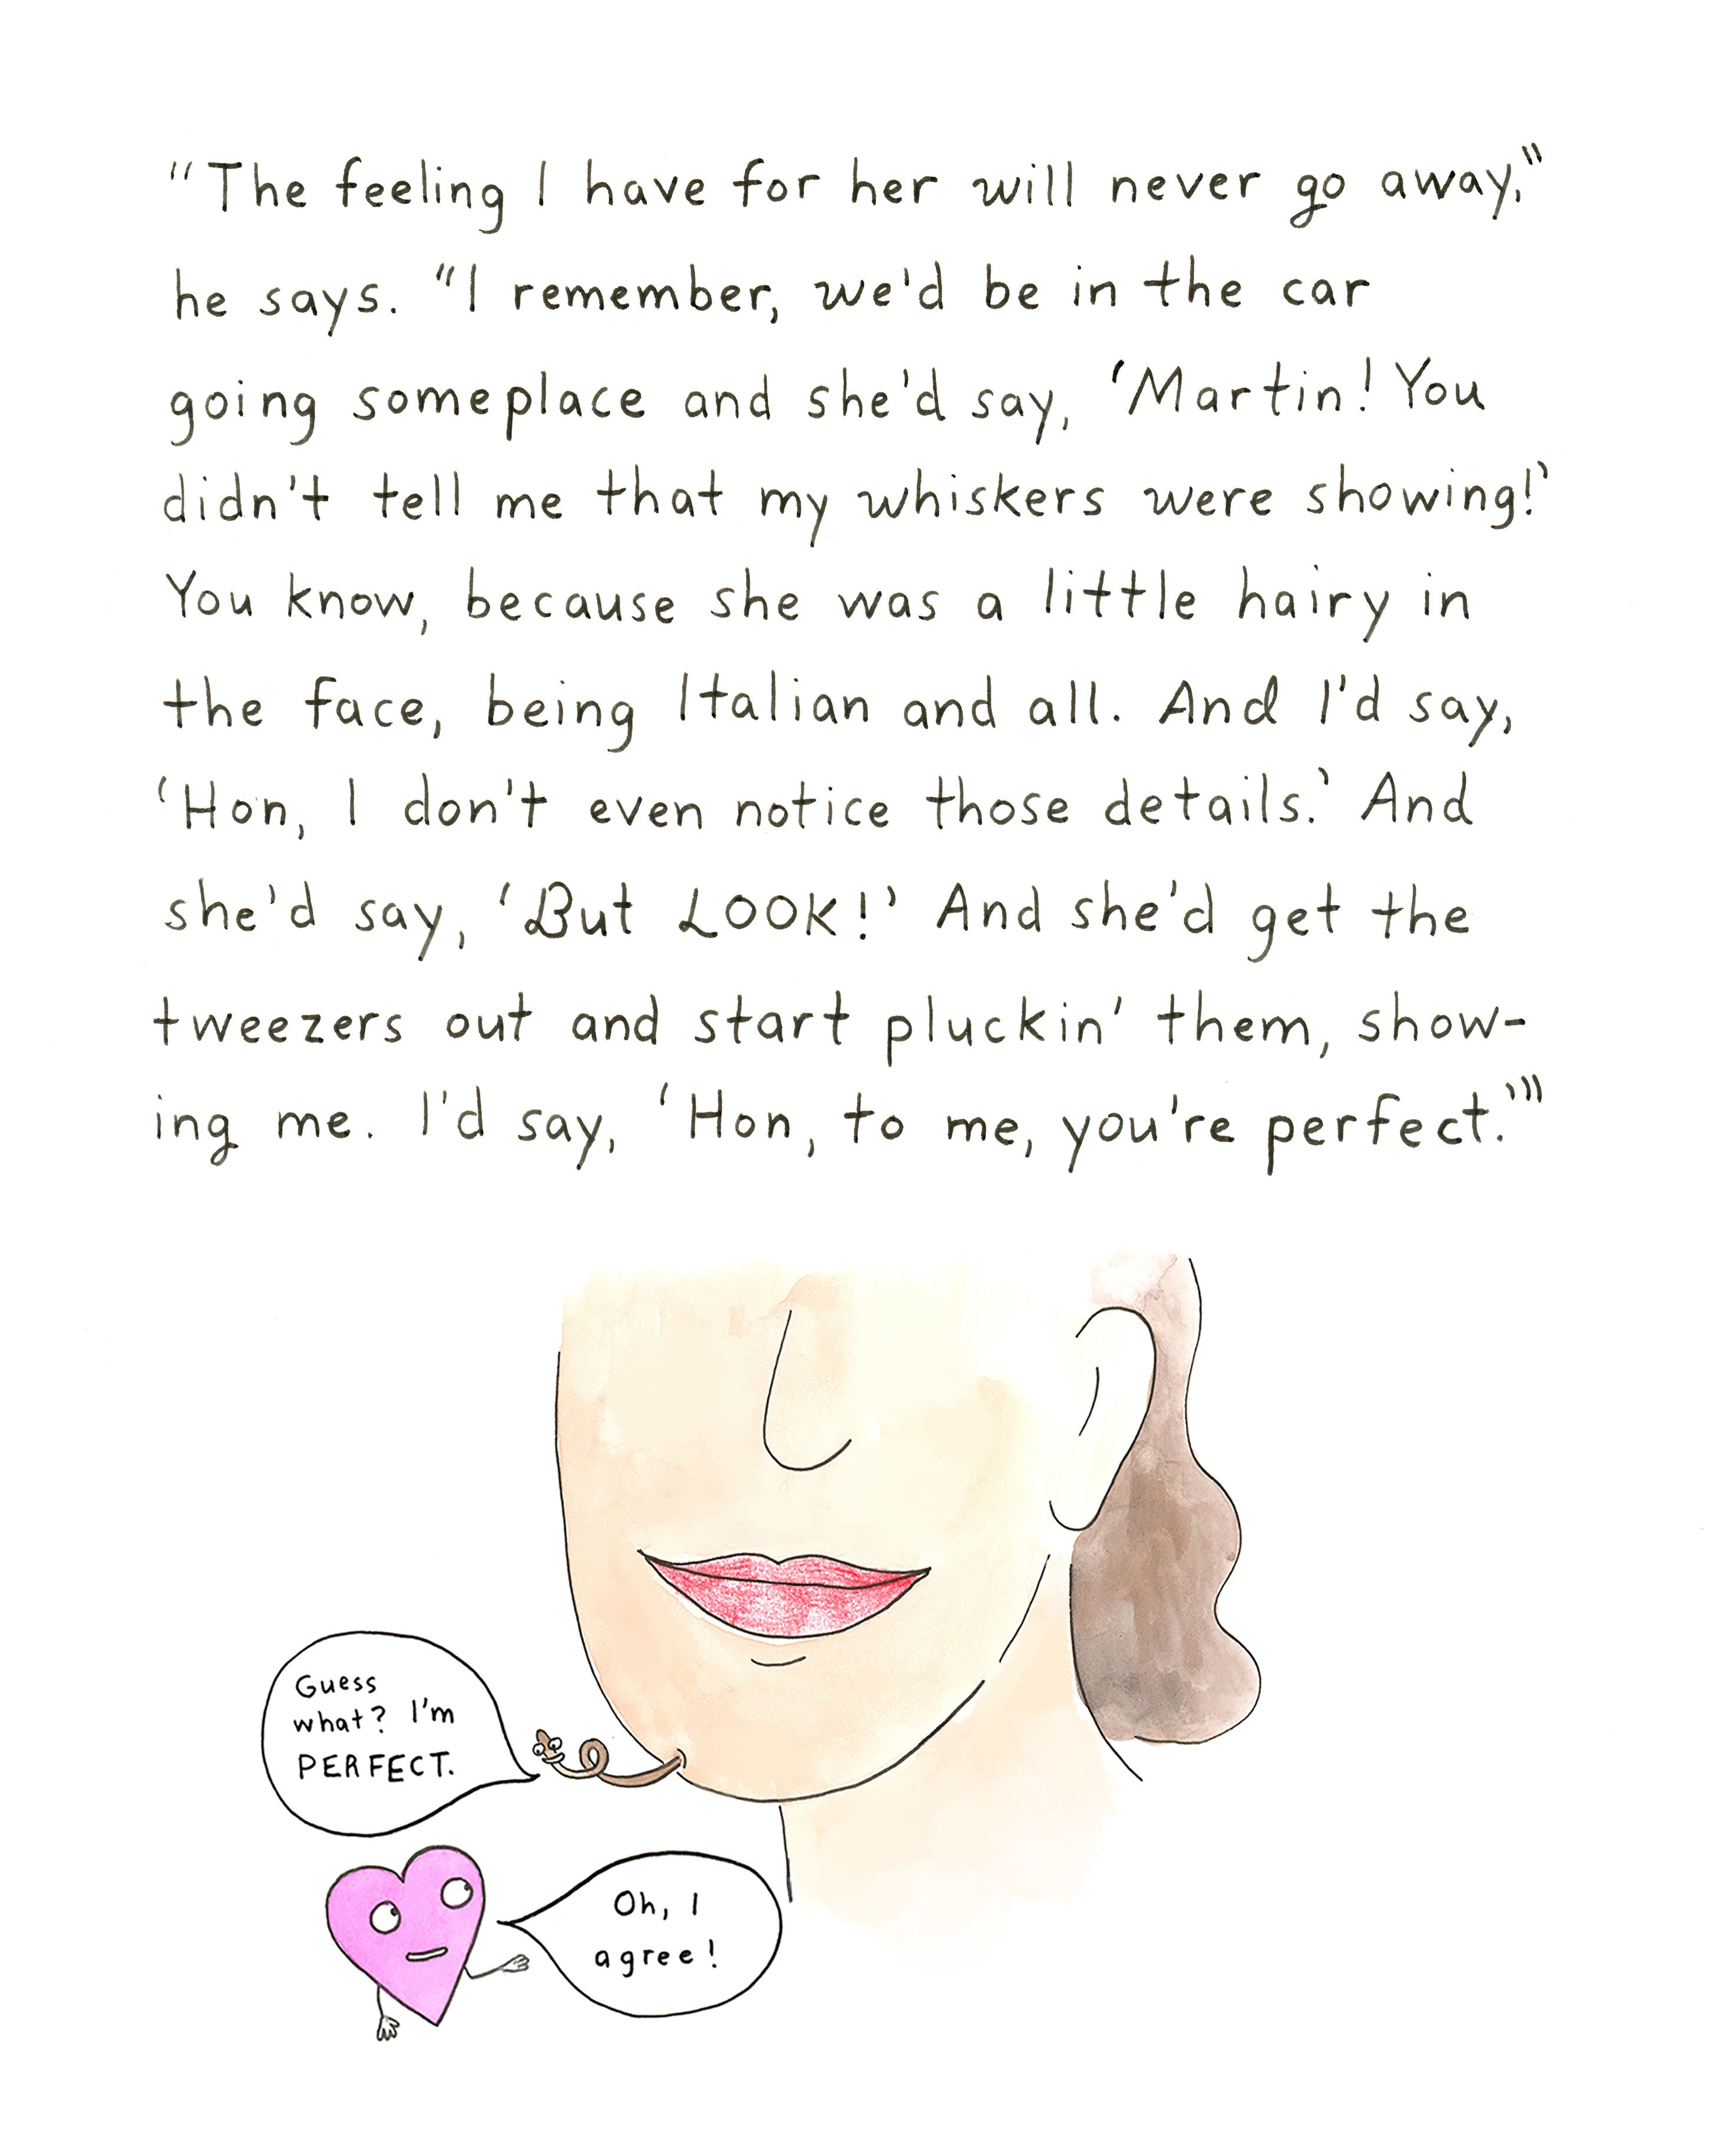 "The feeling I have for her will never go away,"
he says. "I remember, we'd be in the car
going someplace and she'd say, 'Martin! You
didn't tell me that my whiskers were showing!'
You know, because she was a little hairy in
the face, being Italian and all. And I'd say,
'Hon, I don't even notice those details.' And
she'd say, 'But LOOK!' And she'd get the
tweezers out and start pluckin' them, show-
ing me. I'd say, 'Hon, to me, you're perfect.'"
Guess
what? I'm
PERFECT.
Oh, I
agree!